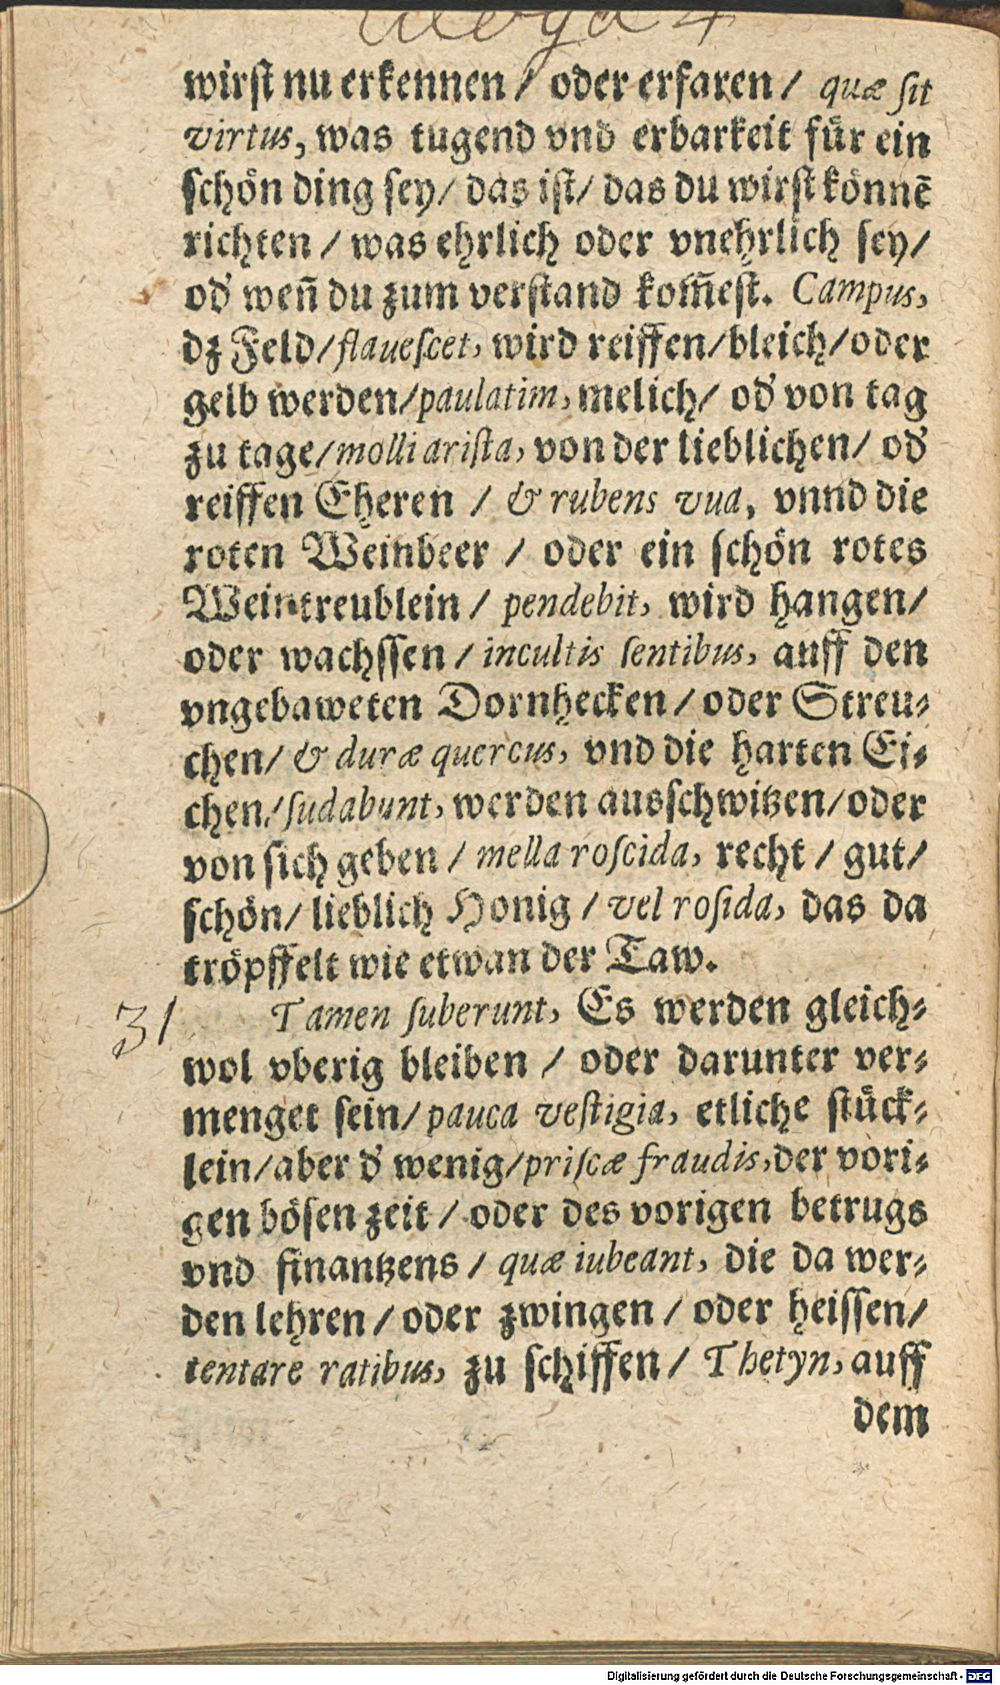 wirſt nu erkennen / oder erfaren / quæ ſit
virtus, was tugend vnd erbarkeit fuͤr ein
ſchoͤn ding ſey / das iſt / das du wirſt koͤnnē
richten / was ehrlich oder vnehrlich ſey /
od' weñ du zum verſtand kom̃eſt. Campus,
dz Feld / flaueſcet, wird reiffen / bleich / oder
gelb werden / paulatim, melich / od' von tag
zu tage / molli ariſta, von der lieblichen / od'
reiffen Eheren / & rubens vua, vnnd die
roten Weinbeer / oder ein ſchoͤn rotes
Weintreublein / pendebit, wird hangen /
oder wachſſen / incultis ſentibus, auff den
vngebaweten Dornhecken / oder Streu⸗
chen / & duræ quercus, vnd die harten Ei⸗
chen / ſudabunt, werden ausſchwitzen / oder
von ſich geben / mella roſcida, recht / gut /
ſchoͤn / lieblich Honig / vel roſida, das da
troͤpffelt wie etwan der Taw.
31 Tamen ſuberunt, Es werden gleich⸗
wol vberig bleiben / oder darunter ver⸗
menget ſein / pauca veſtigia, etliche ſtuͤck⸗
lein / aber d' wenig / priſcæ fraudis, der vori⸗
gen boͤſen zeit / oder des vorigen betrugs
vnd finantzens / quæ iubeant, die da wer⸗
den lehren / oder zwingen / oder heiſſen /
tentare ratibus, zu ſchiffen / Thetyn, auff
dem
Digitalisierung gefördert durch die Deutsche Forschungsgemeinschaft - DFG